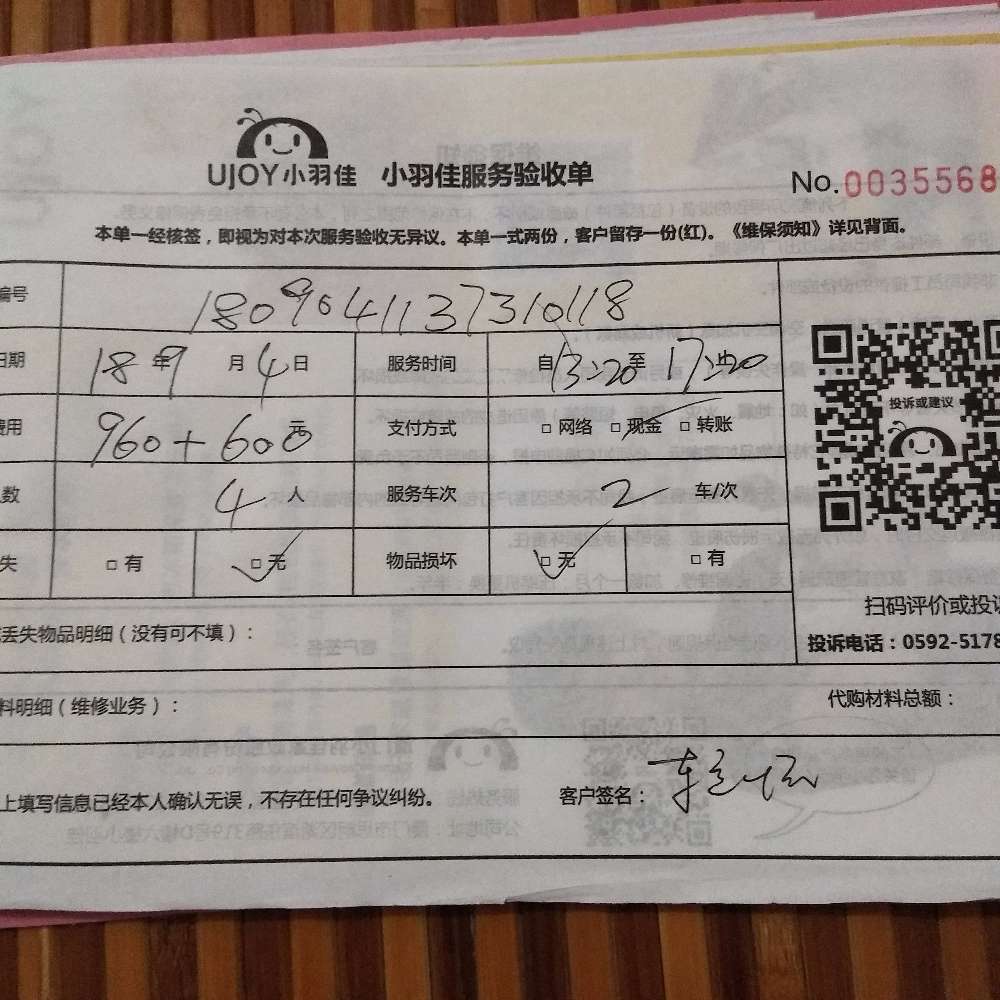 UJOY小羽佳 小羽佳服务验收单
No.0035568
本单一经核签，即视为对本次服务验收无异议。本单一式两份，客户留存一份(红)。《维保须知》详见背面。
编号 1809041137310118
日期 18年9月4日 服务时间 自13:20至17:20
费用 960+600元 支付方式 □网络 □现金 □转账
人数 4人 服务车次 2车/次
失 □有 □无 物品损坏 □无 □有
投诉或建议
扫码评价或投诉
丢失物品明细（没有可不填）：
投诉电话：0592-5178
料明细（维修业务）： 代购材料总额：
上填写信息已经本人确认无误，不存在任何争议纠纷。 客户签名：